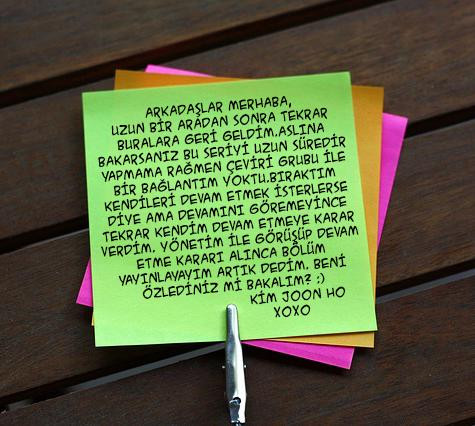 ARKADAŞLAR MERHABA,
UZUN BİR ARADAN SONRA TEKRAR
BURALARA GERİ GELDİM.ASLINA
BAKARSANIZ BU SERİYİ UZUN SÜREDİR
YAPMAMA RAĞMEN ÇEVİRİ GRUBU İLE
BİR BAĞLANTIM YOKTU.BIRAKTIM
KENDİLERİ DEVAM ETMEK İSTERLERSE
DİYE AMA DEVAMINI GÖREMEYİNCE
TEKRAR KENDİM DEVAM ETMEYE KARAR
VERDİM. YÖNETİM İLE GÖRÜŞÜP DEVAM
ETME KARARI ALINCA BÖLÜM
YAYINLAYAYIM ARTIK DEDİM. BENİ
ÖZLEDİNİZ Mİ BAKALIM? :)
KİM JOON HO
XOXO